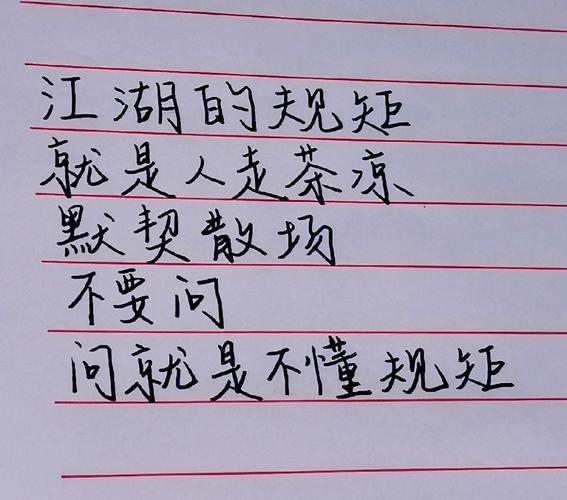 江湖的规矩
就是人走茶凉
默契散场
不要问
问就是不懂规矩